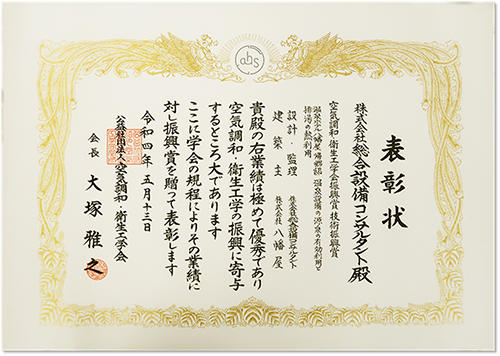 表彰状
株式会社総合設備コンサルタント殿
空気調和・衛生工学会振興賞 技術振興賞
排湯の熱利用
設計・監理 株式会社総合設備コンサルタント
建築主 株式会社八幡屋
貴殿の右業績は極めて優秀であり
空気調和・衛生工学の振興に寄与
するところ大であります
ここに学会の規程によりその業績に
対し振興賞を贈って表彰します
令和四年五月十三日
公益社団法人空気調和・衛生工学会
会長 大塚雅之